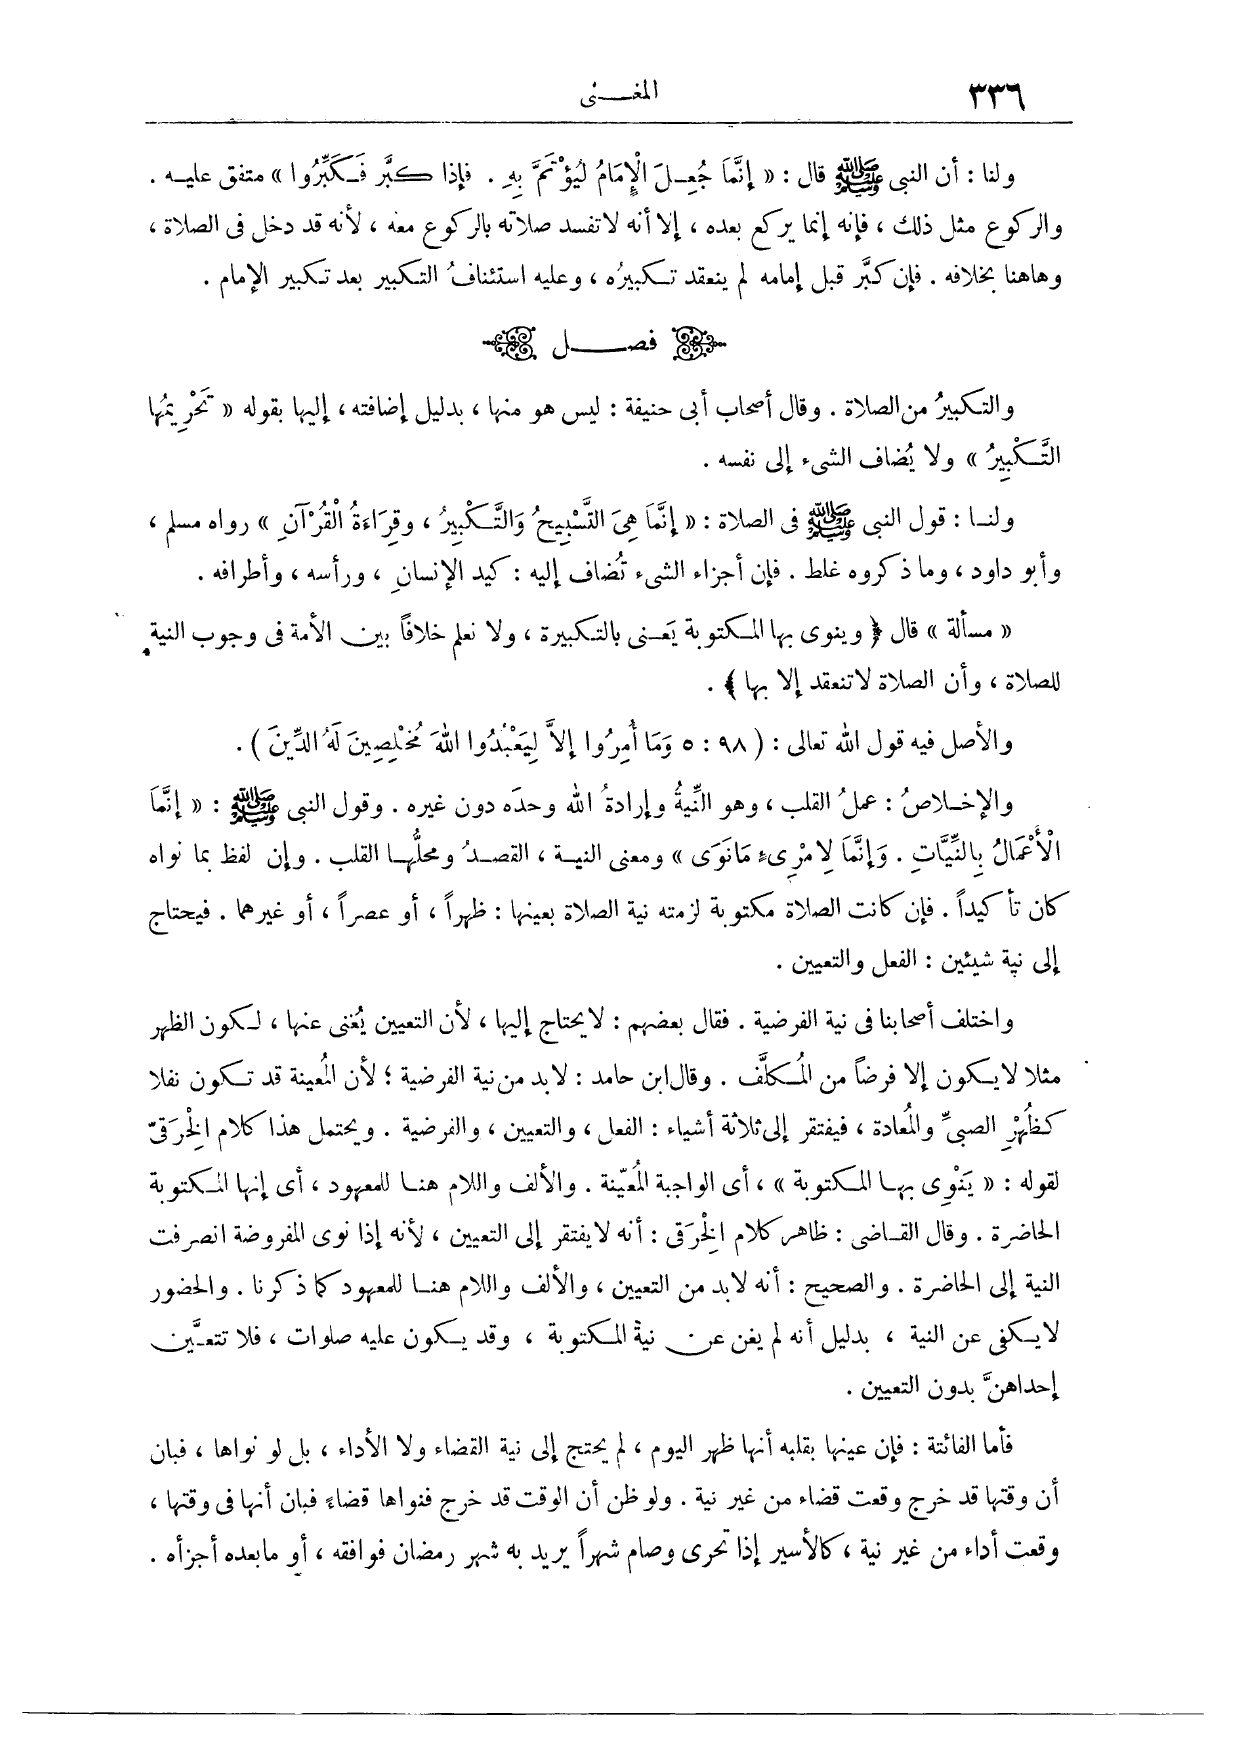 ٣٣٦
المغنى
ولنا : أن النبى ﷺ قال : « إنَّمَا جُعِلَ الْإِمَامُ لِيُؤْتَمَّ بِهِ . فإذا كبَّر فَكَبِّرُوا » متفق عليه .
والركوع مثل ذلك ، فإنه إنما يركع بعده ، إلا أنه لا تفسد صلاته بالركوع معه ، لأنه قد دخل فى الصلاة ،
وهاهنا بخلافه . فإن كبَّر قبل إمامه لم ينعقد تكبيرُه ، وعليه استئنافُ التكبير بعد تكبير الإمام .
فصل
والتكبيرُ من الصلاة . وقال أصحاب أبى حنيفة : ليس هو منها ، بدليل إضافته ، إليها بقوله « تَحْرِيمُها
التَّكْبِيرُ » ولا يُضاف الشىء إلى نفسه .
ولنا : قول النبى ﷺ فى الصلاة : « إنَّمَا هِىَ التَّسْبِيحُ وَالتَّكْبِيرُ ، وقِرَاءَةُ الْقُرْآنِ » رواه مسلم ،
وأبو داود ، وما ذكروه غلط . فإن أجزاء الشىء تُضاف إليه : كيد الإنسانِ ، ورأسه ، وأطرافه .
« مسألة » قال ﴿ وينوى بها المكتوبة يَعنى بالتكبيرة ، ولا نعلم خلافاً بين الأمة فى وجوب النية
للصلاة ، وأن الصلاة لا تنعقد إلا بها ﴾ .
والأصل فيه قول الله تعالى : ( ٩٨ : ٥ وَمَا أُمِرُوا إلاَّ لِيَعْبُدُوا اللهَ مُخْلِصِينَ لَهُ الدِّينَ ) .
والإخلاصُ : عملُ القلب ، وهو النِّيةُ وإرادةُ الله وحدَه دون غيره . وقول النبى ﷺ : « إنَّمَا
الْأَعْمَالُ بِالنِّيَّاتِ . وَإنَّمَا لِامْرِىءٍ مَانَوَى » ومعنى النية ، القصدُ ومحلُّها القلب . وإن لفظ بما نواه
كان تأكيداً . فإن كانت الصلاة مكتوبة لزمته نية الصلاة بعينها : ظهراً ، أو عصراً ، أو غيرهما . فيحتاج
إلى نية شيئين : الفعل والتعيين .
واختلف أصحابنا فى نية الفرضية . فقال بعضهم : لا يحتاج إليها ، لأن التعيين يُغنى عنها ، لكون الظهر
مثلا لا يكون إلا فرضاً من المُكلَّف . وقال ابن حامد : لا بد من نية الفرضية ؛ لأن المُعينة قد تكون نفلا
كظُهْرِ الصبىِّ والمُعادة ، فيفتقر إلى ثلاثة أشياء : الفعل ، والتعيين ، والفرضية . ويحتمل هذا كلام الخِرَقىّ
لقوله : « يَنْوِى بها المكتوبة » ، أى الواجبة المُعيّنة . والألف واللام هنا للمعهود ، أى إنها المكتوبة
الحاضرة . وقال القاضى : ظاهر كلام الخِرَقى : أنه لا يفتقر إلى التعيين ، لأنه إذا نوى المفروضة انصرفت
النية إلى الحاضرة . والصحيح : أنه لا بد من التعيين ، والألف واللام هنا للمعهود كما ذكرنا . والحضور
لا يكفى عن النية ، بدليل أنه لم يغن عن نية المكتوبة ، وقد يكون عليه صلوات ، فلا تتعيَّن
إحداهنَّ بدون التعيين .
فأما الفائتة : فإن عينها بقلبه أنها ظهر اليوم ، لم يحتج إلى نية القضاء ولا الأداء ، بل لو نواها ، فبان
أن وقتها قد خرج وقعت قضاء من غير نية . ولو ظن أن الوقت قد خرج فنواها قضاءً فبان أنها فى وقتها ،
وقعت أداء من غير نية ، كالأسير إذا تحرى وصام شهراً يريد به شهر رمضان فوافقه ، أو مابعده أجزأه .